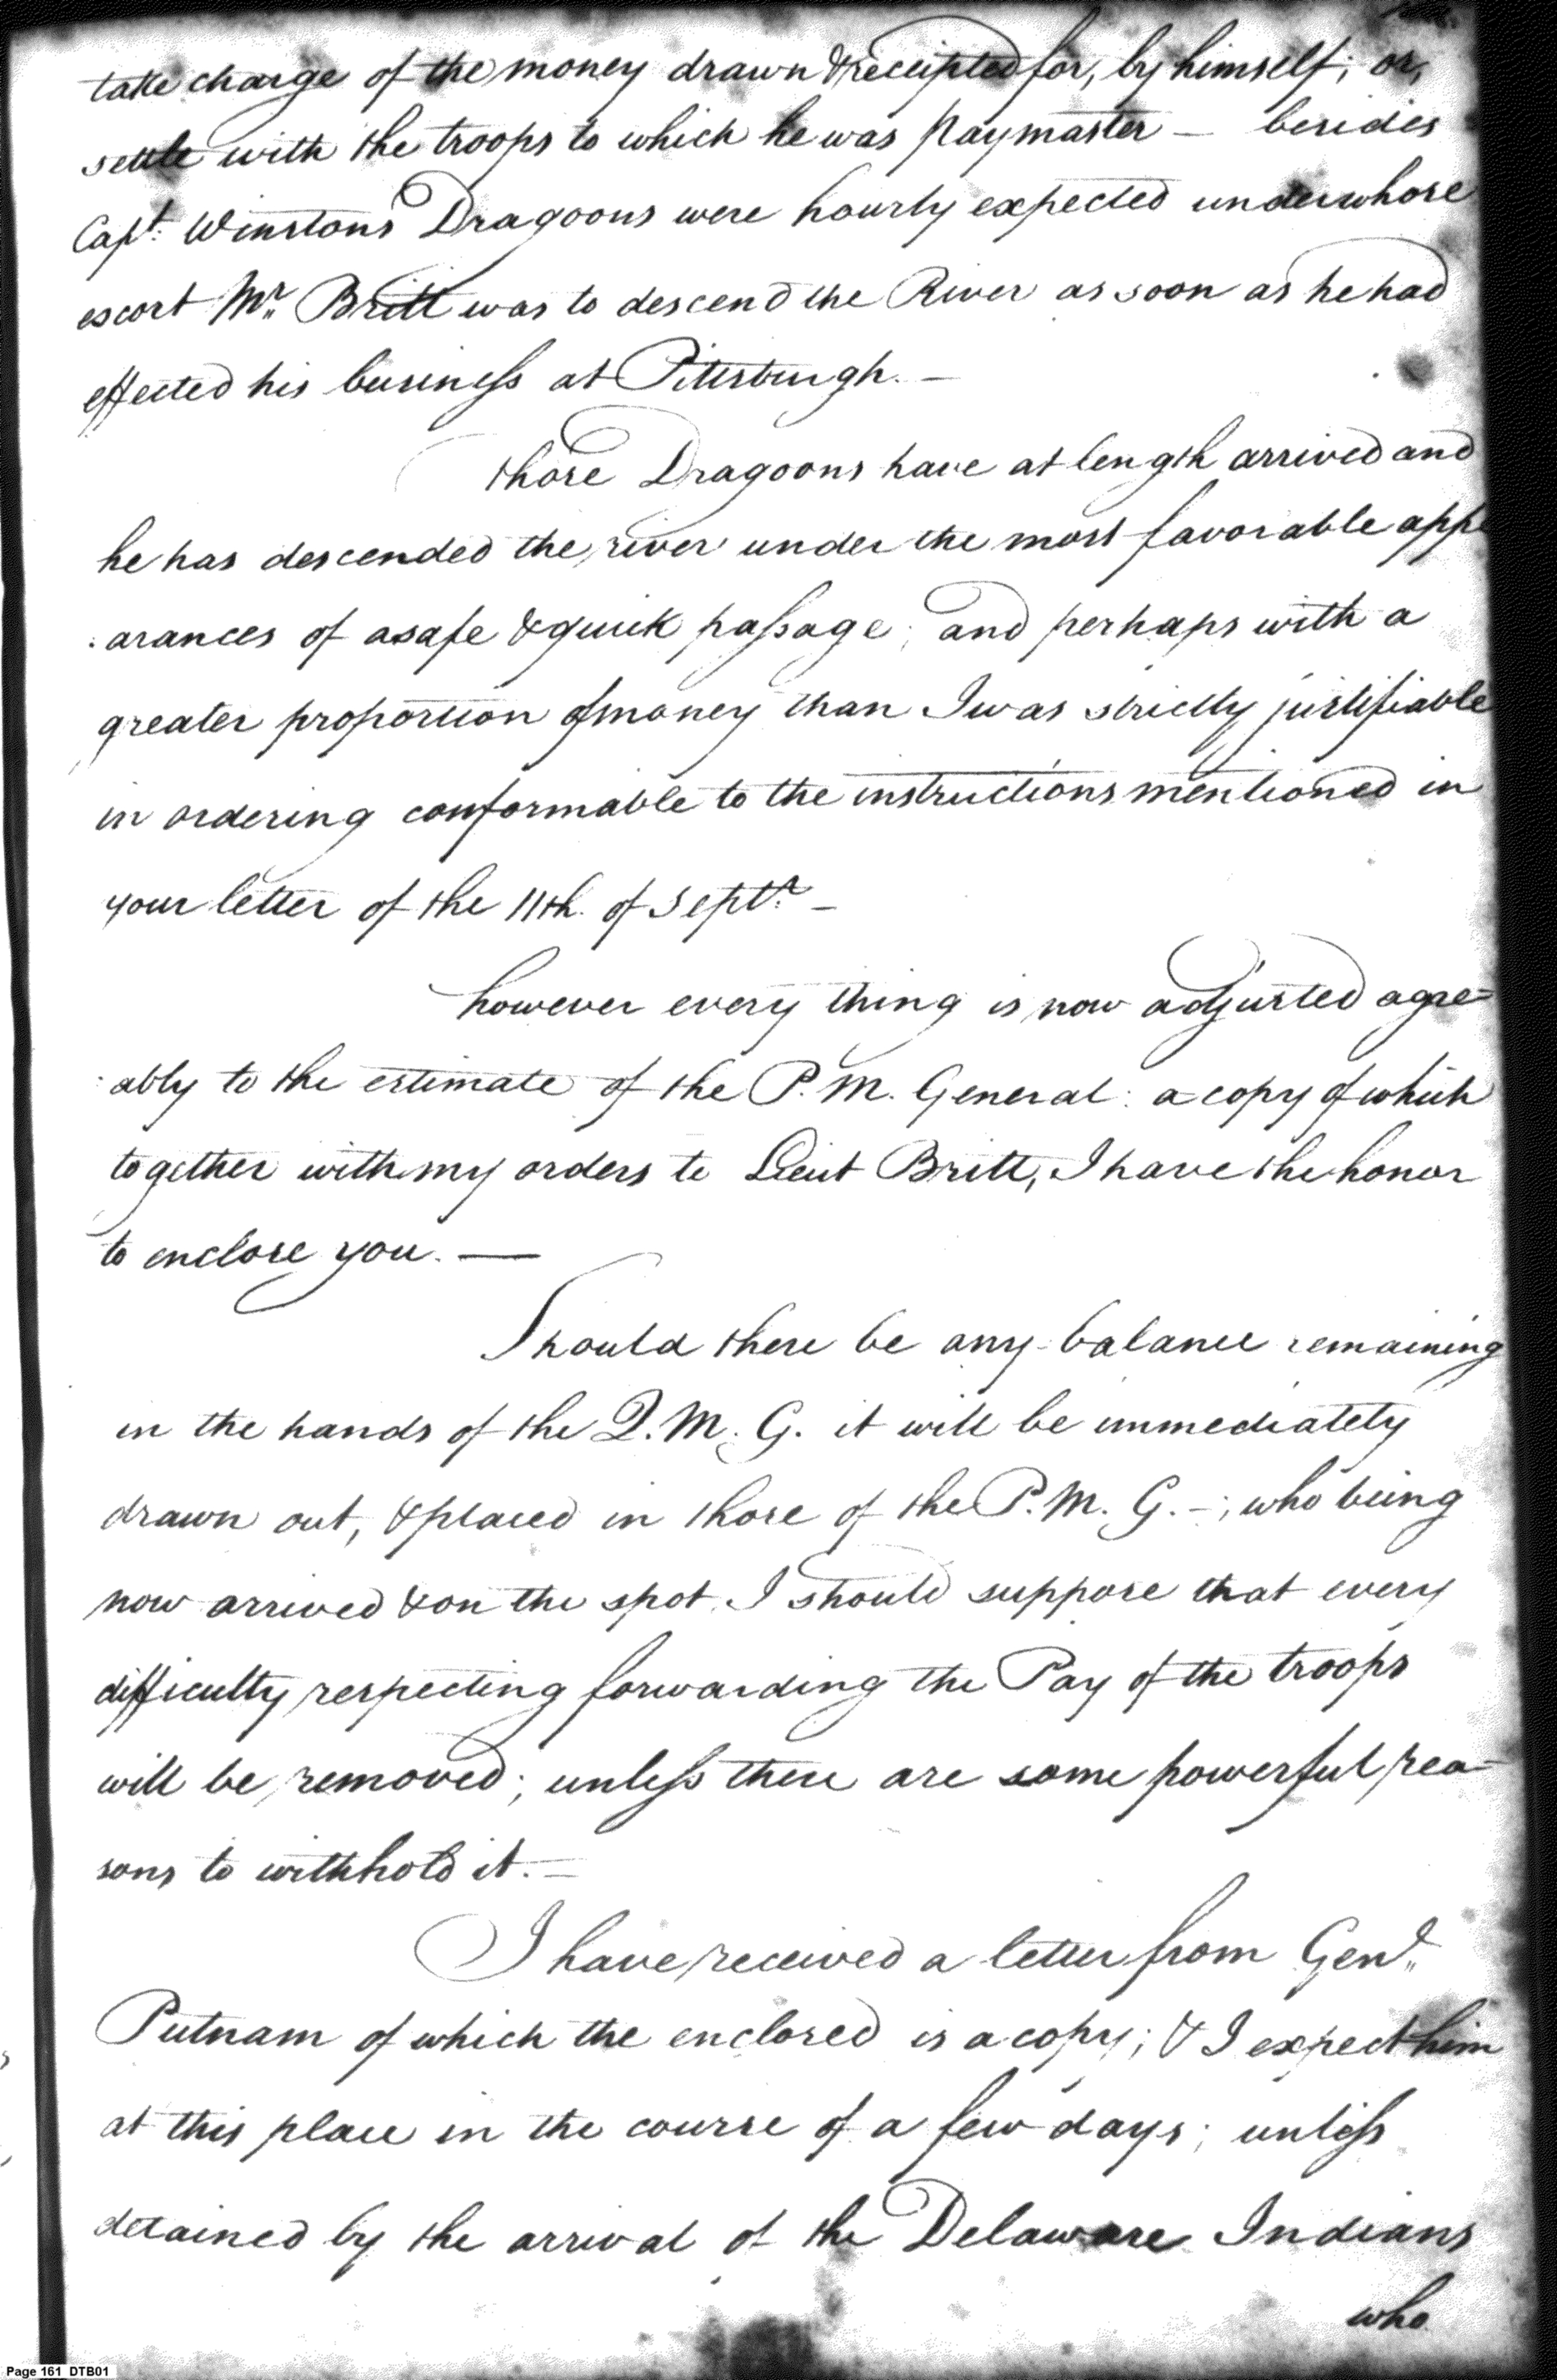 take charge of the money drawn & receipted for, by himself; or,
settle with the troops to which he was Paymaster — besides
Capt. Winstons Dragoons were hourly expected under whose
escort Mr. Britt was to descend the River as soon as he had
effected his business at Pittsburgh. —
those Dragoons have at length arrived and
he has descended the river under the most favorable appe
arances of a safe & quick passage; and perhaps with a
greater proportion of money than I was strictly justifiable
in ordering conformable to the instructions mentioned in
your letter of the 11th. of Septr. —
however every thing is now adjusted agre=
ably to the estimate of the P. M. General: a copy of which
together with my orders to Lieut Britt, I have the honor
to enclose you. —
Should there be any balance remaining
in the hands of the Q. M. G. it will be immediately
drawn out, & placed in those of the P. M. G. —; who being
now arrived & on the spot, I should suppose that every
difficulty respecting forwarding the Pay of the troops
will be removed; unless there are some powerful rea-
sons to withhold it. —
I have received a letter from Genl.
Putnam of which the enclosed is a copy; & I expect him
at this place in the course of a few days; unless
detained by the arrival of the Delaware Indians
who
Page 161 DTB01